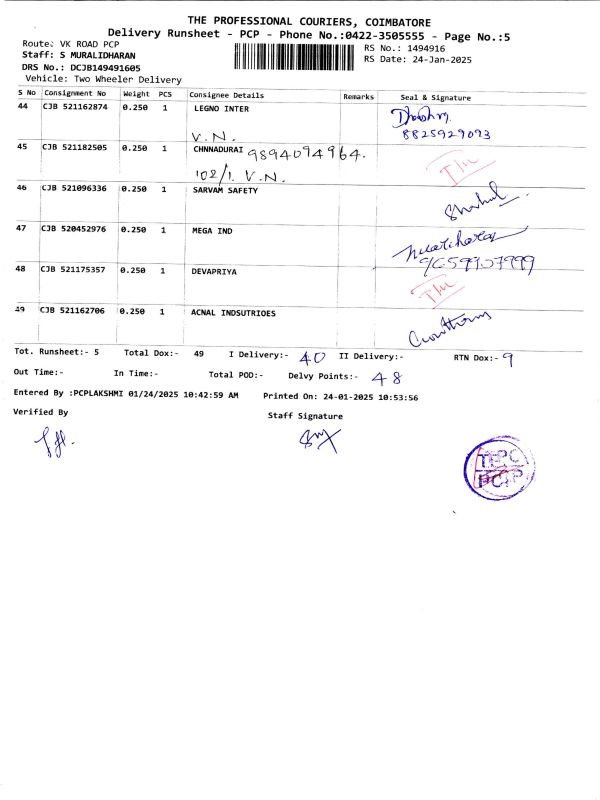 THE PROFESSIONAL COURIERS, COIMBATORE
Delivery Runsheet - PCP - Phone No.:0422-3505555 - Page No.:5
Route: VK ROAD PCP
RS No.: 1494916
Staff: S MURALIDHARAN
RS Date: 24-Jan-2025
DRS No.: DCJB149491605
Vehicle: Two Wheeler Delivery
S No Consignment No Weight PCS Consignee Details Remarks Seal & Signature
44 CJB 521162874 0.250 1 LEGNO INTER
8825929093
V.N.
45 CJB 521182505 0.250 1 CHNNADURAI 9894094964.
102/1. V.N.
46 CJB 521096336 0.250 1 SARVAM SAFETY
47 CJB 520452976 0.250 1 MEGA IND
48 CJB 521175357 0.250 1 DEVAPRIYA
49 CJB 521162706 0.250 1 ACNAL INDSUTRIOES
Tot. Runsheet:- 5 Total Dox:- 49 I Delivery:- 40 II Delivery:- RTN Dox:- 9
Out Time:- In Time:- Total POD:- Delvy Points:- 48
Entered By :PCPLAKSHMI 01/24/2025 10:42:59 AM Printed On: 24-01-2025 10:53:56
Verified By
Staff Signature
TEPC
PCP